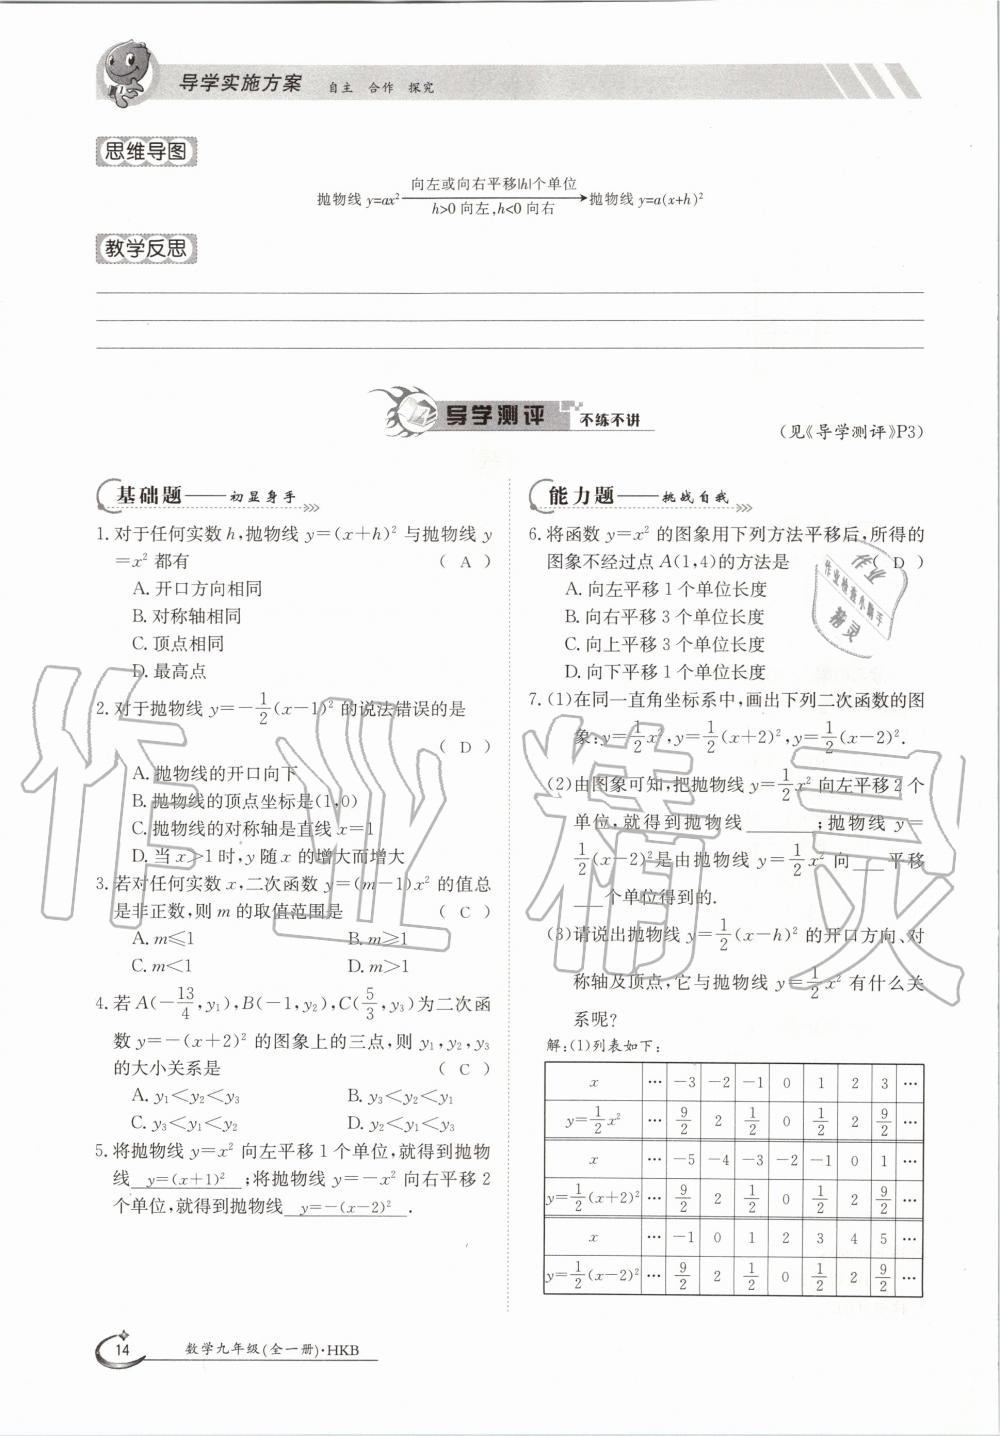 导学实施方案 自主 合作 探究
思维导图
抛物线 y=ax² 向左或向右平移|h|个单位 h>0 向左,h<0 向右 抛物线 y=a(x+h)²
教学反思
导学测评 不练不讲
(见《导学测评》P3)
基础题——初显身手
1. 对于任何实数 h,抛物线 y=(x+h)² 与抛物线 y
=x² 都有 ( A )
A. 开口方向相同
B. 对称轴相同
C. 顶点相同
D. 最高点
2. 对于抛物线 y=-1/2(x-1)² 的说法错误的是
( D )
A. 抛物线的开口向下
B. 抛物线的顶点坐标是(1,0)
C. 抛物线的对称轴是直线 x=1
D. 当 x>1 时,y 随 x 的增大而增大
3. 若对任何实数 x,二次函数 y=(m-1)x² 的值总
是非正数,则 m 的取值范围是 ( C )
A. m≤1 B. m≥1
C. m<1 D. m>1
4. 若 A(-13/4,y₁),B(-1,y₂),C(5/3,y₃)为二次函
数 y=-(x+2)² 的图象上的三点,则 y₁,y₂,y₃
的大小关系是 ( C )
A. y₁<y₂<y₃ B. y₃<y₂<y₁
C. y₃<y₁<y₂ D. y₂<y₁<y₃
5. 将抛物线 y=x² 向左平移 1 个单位,就得到抛物
线 y=(x+1)² ;将抛物线 y=-x² 向右平移 2
个单位,就得到抛物线 y=-(x-2)² .
能力题——挑战自我
6. 将函数 y=x² 的图象用下列方法平移后,所得的
图象不经过点 A(1,4)的方法是 ( D )
A. 向左平移 1 个单位长度
B. 向右平移 3 个单位长度
C. 向上平移 3 个单位长度
D. 向下平移 1 个单位长度
7. (1)在同一直角坐标系中,画出下列二次函数的图
象:y=1/2x²,y=1/2(x+2)²,y=1/2(x-2)².
(2)由图象可知,把抛物线 y=1/2x² 向左平移 2 个
单位,就得到抛物线________;抛物线 y=
1/2(x-2)²是由抛物线 y=1/2x² 向___平移
___个单位得到的.
(3)请说出抛物线 y=1/2(x-h)² 的开口方向、对
称轴及顶点,它与抛物线 y=1/2x² 有什么关
系呢?
解:(1)列表如下:
x … -3 -2 -1 0 1 2 3 …
y=1/2x² … 9/2 2 1/2 0 1/2 2 9/2 …
x … -5 -4 -3 -2 -1 0 1 …
y=1/2(x+2)² … 9/2 2 1/2 0 1/2 2 9/2 …
x … -1 0 1 2 3 4 5 …
y=1/2(x-2)² … 9/2 2 1/2 0 1/2 2 9/2 …
14 数学九年级(全一册)·HKB
作业精灵
作业
作业检查小助手
精灵